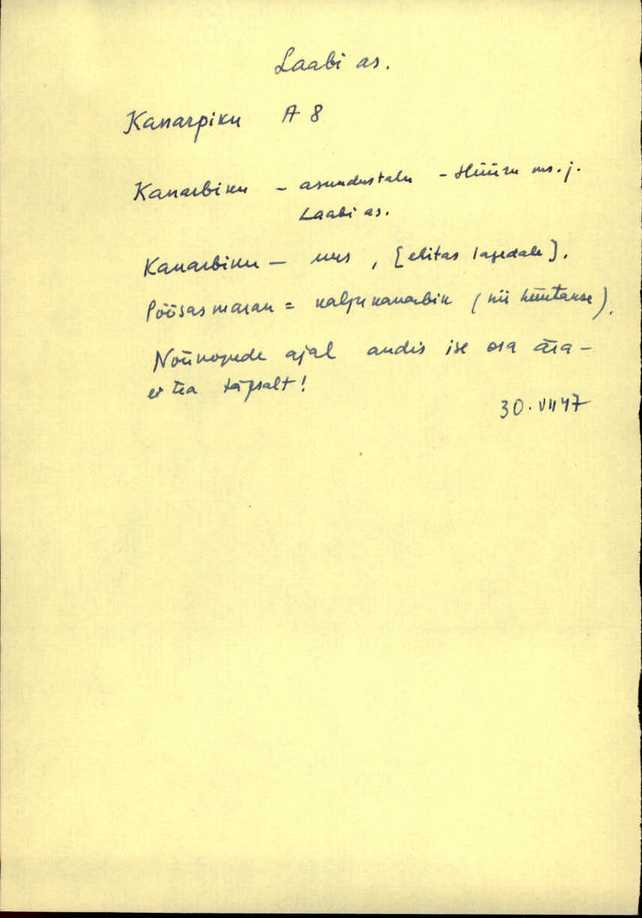 Laabi as.
Kanarpiku A 8
Kanarbiku - asundustalu - Hüüru ms. j.
Laabi as.
Kanarbiku - uus, [ehitas lagedale].
Põõsasmaran = kaljukanarbik (nii hüütakse).
Nõukogude ajal andis ise osa ära -
ei tea täpsalt!
30. VII 47